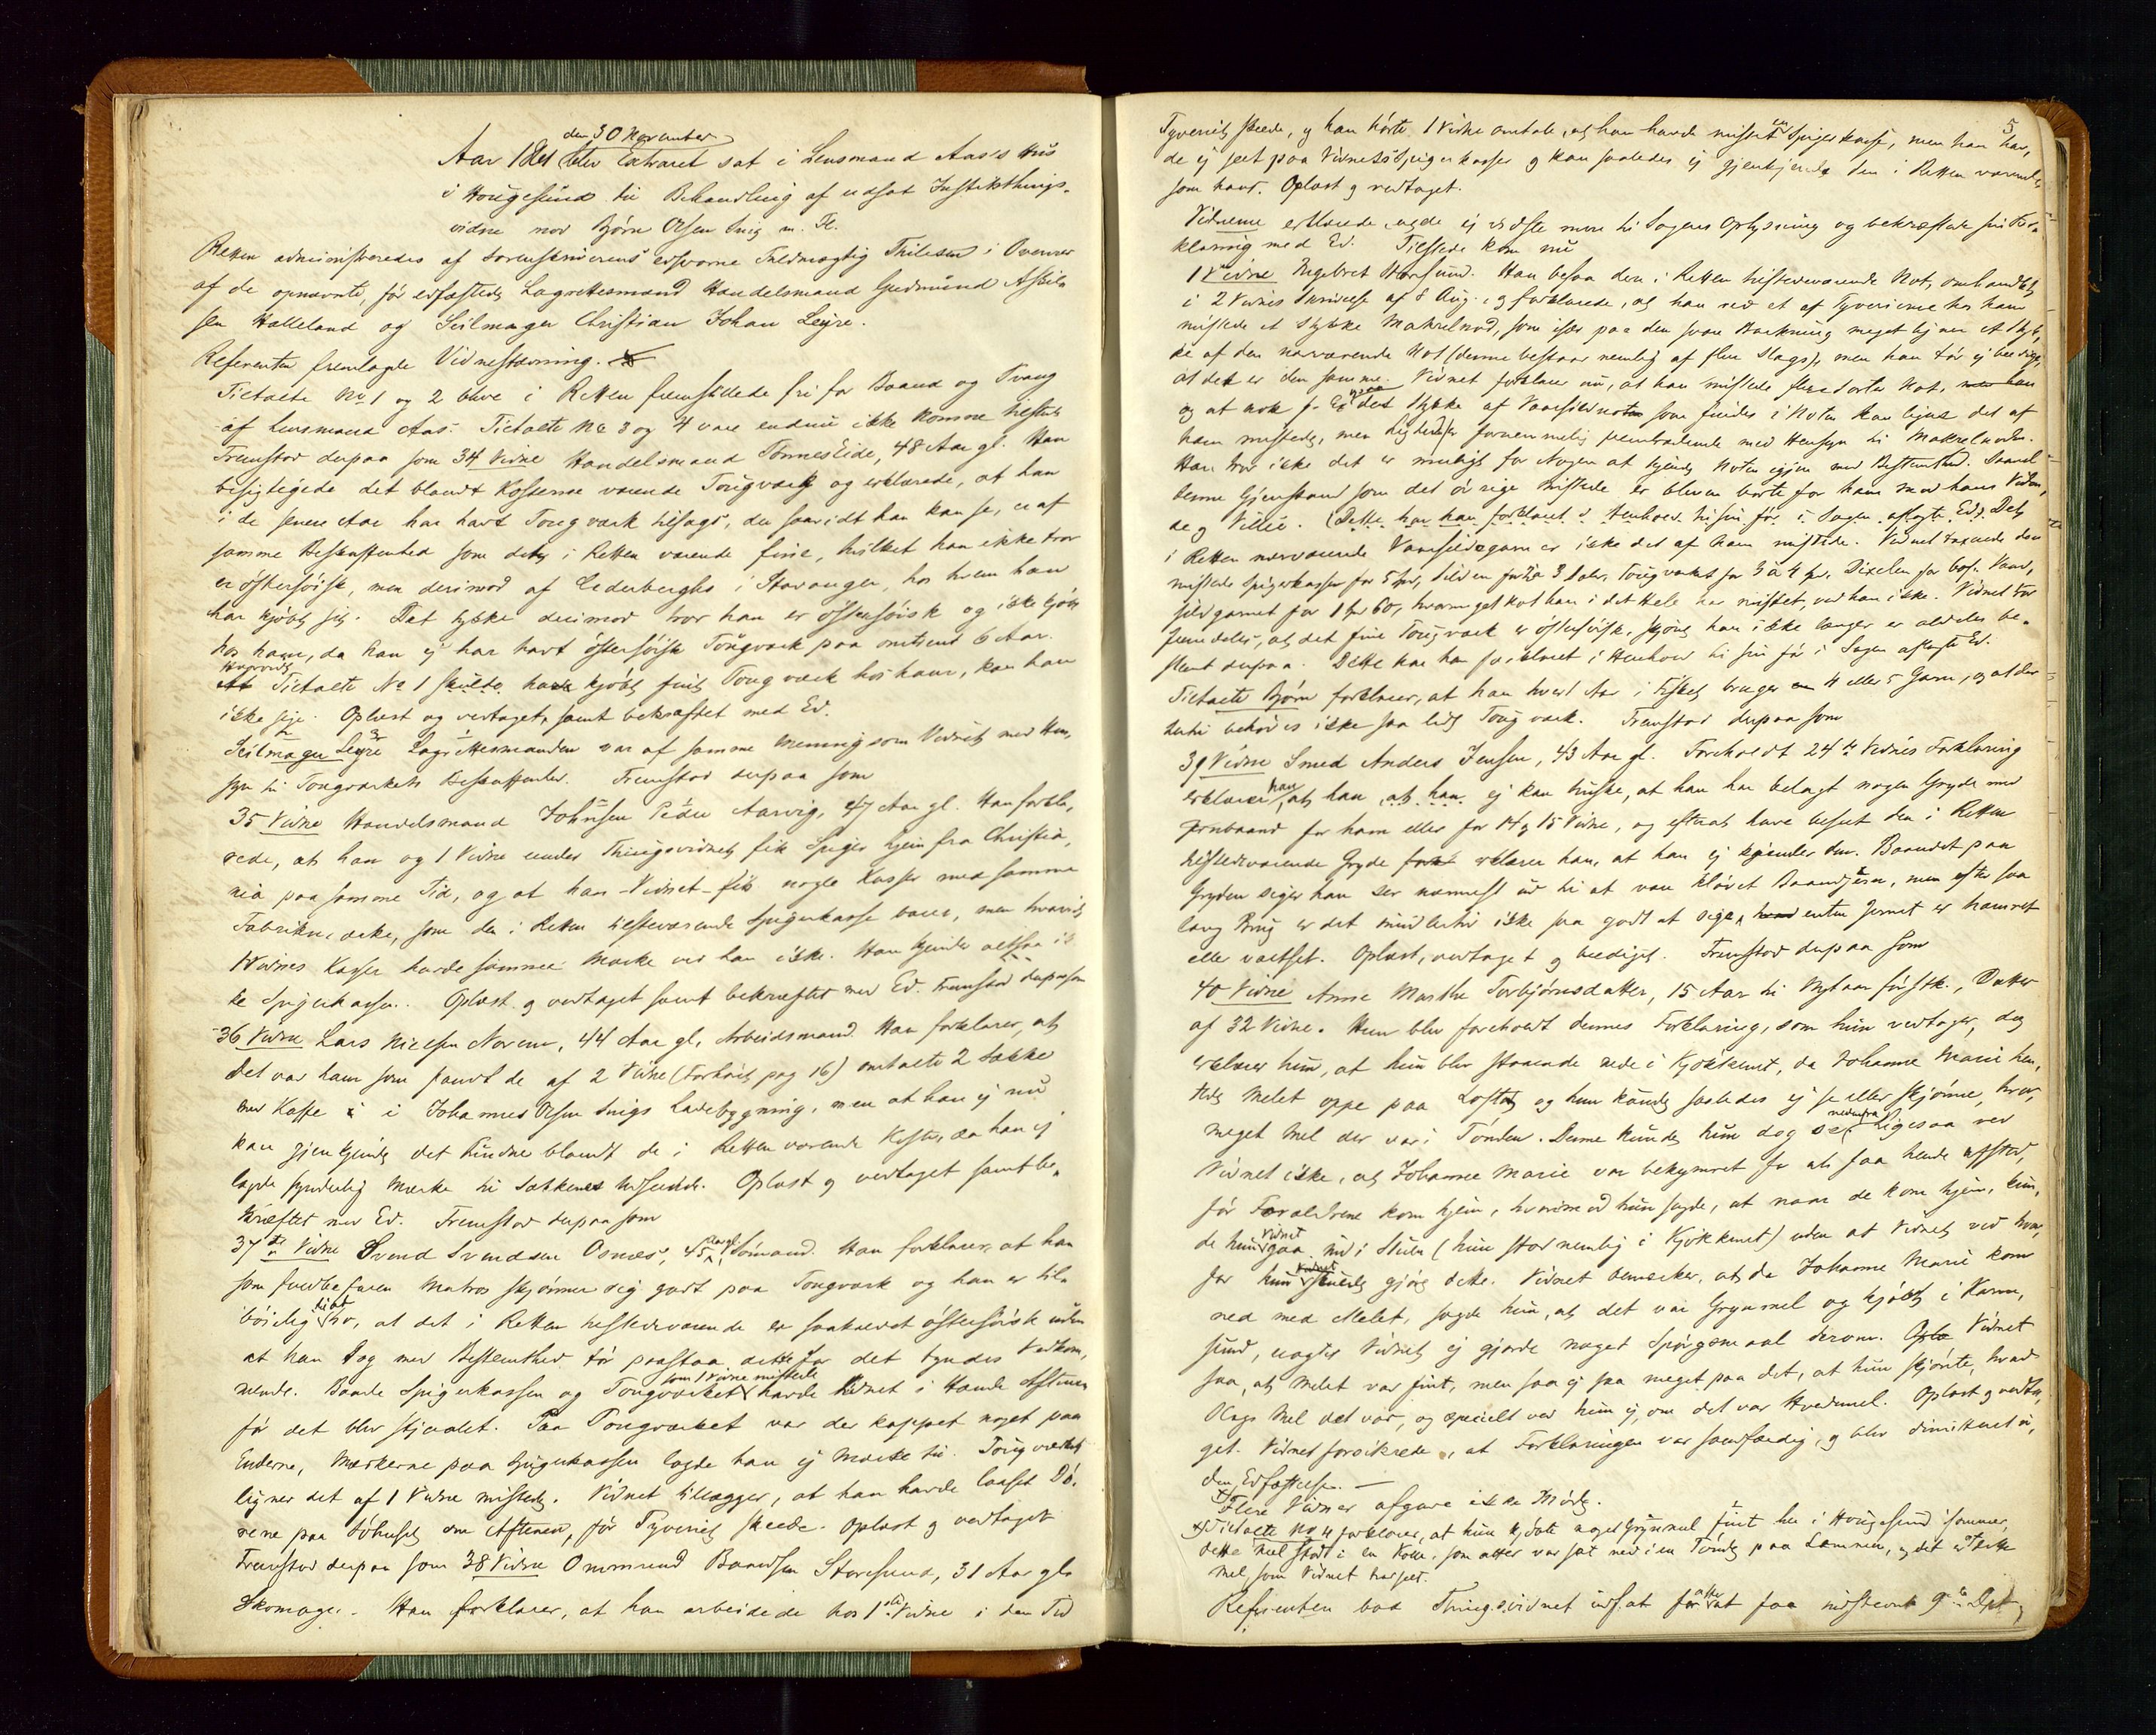 den 30 November
Aar 1861 blev Extraret sat i Lensmand Aas's Hus
i Hougesund til Behandling af udsat Justitsthings-
vidne mod Bjørn Olsen Snig m. Fl.
Retten administreredes af Sorenskriverens edsvorne Fuldmægtig Thilesen i Overvær
af de opnævnte, før edfæstede Lagrettesmænd Handelsmand Gudmund Askils
sen Halleland og Seilmager Christian Johan Leyre.
Referenten fremlagde Vidnestævning.
Tiltalte No 1 og 2 bleve i Retten fremstillede fri for Baand og Tvang
af Lensmand Aas. Tiltalte No 3 og 4 vare endnu ikke komne tilstede
Fremstod derpaa som 34 Vidne Handelsmand Tønnes Eide, 48 Aar gl. Han
besigtigede det blandt Kosterne værende Tougværk og erklærede, at han
i de senere Aar har havt Tougværk tilsalgs, der saavidt han kan se, er af
samme Beskaffenhed som det i Retten værende fine, hvilket han ikke tror
er østersøisk, men derimod af Cederberghs i Stavanger, hos hvem han
har kjøbt sit. Det tykke derimod tror han er østersøisk og ikke kjøbt
hos ham, da han ej har havt østersøisk Tougværk paa omtrent 6 Aar.
Hvorvidt
Tiltalte No 1 Skulde have kjøbt fint Tougværk hos ham, kan han
ikke sige. Oplæst og vedtaget, samt bekræftet med Ed.
Seilmager Leyre Lagrettesmanden var af samme Mening som Vidnet med Hen,
syn til Tougværkets Beskaffenhed. Fremstod derpaa som
35 Vidne Handelsmand Johnsen Peder Aarvig, 47 Aar gl. Han forkla,
rede, at han og 1 Vidne under Thingsvidnet fik Spiger hjem fra Christia,
nia paa samme Tid, og at han - Vidnet - fik nogle Kasser med samme
Fabrikmærke, som den i Retten tilstedeværende Spigerkasse bærer, men hvorvidt
1 Vidnes Kasser havde samme Mærke ved han ikke. Han kjender altsaa ik
ke Spigerkassen. Oplæst og vedtaget samt bekræftet med Ed. Fremstod derpaa som
36 Vidne Lars Nielsen Norem, 44 Aar gl, Arbeidsmand. Han forklarer, at
det var ham som fandt de af 2 Vidne (Forhørets pag 16) omtalte 2 Sække
med Kaffe i Johannes Olsen Snigs Ladebygning, men at han ej nu
kan gjenkjende det Fundne blandt de i Retten værende Koster, da han ej
lagde synderlig Mærke til Sækkenes Udseende. Oplæst og vedtaget samt be-
kræftet med Ed. Fremstod derpaa som
37te Vidne Svend Svendsen Osnæs, 45 Aar gl. Sømand. Han forklarer, at han
som fuldbefaren Matros skjønner sig godt paa Tougværk og han er til-
bøielig til at tro, at det i Retten tilstedeværende er saakaldt østersøisk uden
at han dog med Bestemthed tør paastaa dette for det tyndes Vedkom,
som 1 Vidne mistede
mende. Baade Spigerkassen og Tougværket havde Vidnet i Hænde Aftenen
før det blev stjaalet. Paa Tougværket var der kappet noget paa
Enderne, Mærkerne paa Spigerkassen lagde han ej Mærke til. Tougværket
ligner det af 1 Vidne mistede. Vidnet tillægger, at han havde laaset Dø-
rene paa Søhuset om Aftenen, før Tyveriet skeede. Oplæst og vedtaget
Fremstod derpaa som 38 Vidne Ommund Baardsen Storesund, 31 Aar gl.
Skomager. Han forklarer, at han arbeidede hos 1ste Vidne i den Tid
5
Tyveriet skeede, og han hørte 1 Vidne omtale, at han havde mistet en Spigerkasse, men han hav,
de ej seet paa Vidnets Spigerkasser og kan saaledes ej gjenkjende den i Retten værende
som hans. Oplæst og vedtaget.
Vidnerne erklærede at de ej vidste mere til Sagens Oplysning og bekræftede sin For-
klaring med Ed. Tilstede kom nu
1 Vidne Ingebret Storesund. Han besaa den i Retten tilstedeværende Not, omhandlet
i 2 Vidnes Skrivelse af 8 Aug. og forklarede, at han ved et af Tyverierne hos ham
mistede et Stykke Makrelnod, som især paa den svære Barkning meget ligner et Styk,
ke af den nærværende Not (denne bestaar nemlig af flere Slags), men han tør ej beedige,
at det er den samme. Vidnet forklarer nu, at han mistede flere Sorter Not,
og at nok et Stykke af Vaarsildnoten som findes i Noten kan ligne det af
ham mistede, men Ligheden er fornemmelig fremtrædende med Hensyn til Makrelnoden.
Han tror ikke det er muligt for Nogen at kjende Noten igjen med Bestemthed. Saavel
denne Gjenstand som det øvrige Mistede er bleven borte for ham mod hans Viden,
de og Villie. (Dette har han forklaret i Henhold til sin før i Sagen aflagte Ed). Det
i Retten nærværende Vaarsildgarn er ikke det af ham mistede. Vidnet taxerede den
mistede Spigerkasse for 5 Spd, Silden for 3 Daler, Tougværket for 3 à 4 Spd, Dixelen for 60 s. Vaar,
sildgarnet for 1 Spd 60 s, hvormeget Not han i det Hele har mistet, ved han ikke. Vidnet tror
fremdeles, at det fine Tougværk er østersøisk, skjønt han ikke længer er aldeles be-
stemt derpaa. Dette har han forklaret i Henhold til sin før i Sagen aflagte Ed.
Tiltalte Bjørn forklarer, at han hvert Aar i Fisket bruger 4 eller 5 Garn, og at der
dertil behøves ikke saa lidt Tougværk. Fremstod derpaa som
39 Vidne Smed Anders Jensen, 43 Aar gl. Foreholdt 24de Vidnes Forklaring
erklærer han, at han ej kan huske, at han har belagt nogen Gryde med
Jernbaand for ham eller for 14 og 15 Vidne, og efterat have beseet den i Retten
tilstedeværende Gryde erklærer han, at han ej kjender den. Baandet paa
Gryden siger han ser nærmest ud til at være kløvet Baandjern, men efter saa
lang Brug er det imidlertid ikke saa godt at sige, enten Jernet er hamret
eller valtset. Oplæst, vedtaget og beediget. Fremstod derpaa som
40 Vidne Anne Marthe Torbjørnsdatter, 15 Aar til Nytaar førstk., Datter
af 32 Vidne. Hun blev foreholdt dennes Forklaring, som hun vedtager, dog
erklærer hun, at hun blev staaende nede i Kjøkkenet, da Johanne Marie hen,
tede Melet oppe paa Loftet og hun kunde saaledes ej se eller skjønne, hvor,
meget Mel der var i Tønden. Denne kunde hun dog se nedenfra. Ligesaa ved
Vidnet ikke, at Johanne Marie var bekymret for at faa hende afsted,
før Forældrene kom hjem, hvorimod hun sagde, at naar de kom hjem, kun,
de hun Vidnet gaa ind i Stuen (hun stod nemlig i Kjøkkenet) uden at Vidnet ved hvor,
for hun Vidnet skulde gjøre dette. Vidnet bemærker, at da Johanne Marie kom
ned med Melet, sagde hun, at det var Grynmel og kjøbt i Karm,
sund, uagtet Vidnet ej gjorde noget Spørgsmaal derom. Vidnet
saa, at Melet var fint, men saa ej saa meget paa det, at hun skjønte, hvad
Slags Mel det var, og specielt ved hun ej, om det var Hvedemel. Oplæst og vedta,
get. Vidnet forsikrede, at Forklaringen var sandfærdig, og blev dimitteret u,
den Edfæstelse. —
Flere Vidner afgave ikke Møde.
Tiltalte No 4 forklarer, at hun kjøbte noget Grynmel fint her i Hougesund i sommer,
dette Mel stod i en Kolle, som atter var sat ned i en Tønde paa Lemmen, og det er dette
Mel, som Vidnet har seet.
Referenten bad Thingsvidnet udsat for atter at faa indstævnt 9de Dpt,